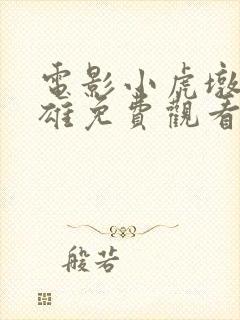 電影小虎墩
雄免費觀看
般若